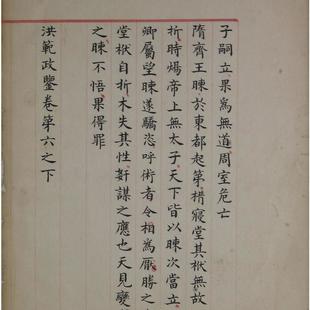 子嗣立果為無道周室危亡
隋齊王暕於東都起第搆寢堂其栿無故
折時煬帝上無太子天下皆以暕次當立
卿屬望暕遂驕恣呼術者令相為厭勝之
堂栿自折木失其性姧謀之應也天見變
之暕不悟果得罪
洪範政鑒卷第六之下